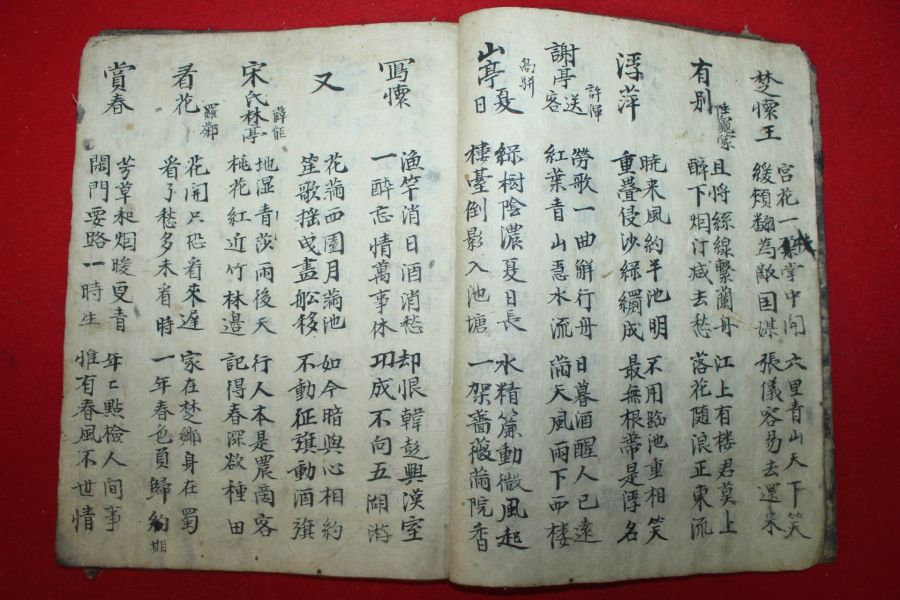 楚懷王
宮花一朵掌中開
緩頰翻為敵国媒
六里青山天下笑
張儀容易去還来
有別
陸龜蒙
且將絲線繫蘭舟
醉下烟汀减去愁
江上有楼君莫上
落花随浪正東流
浮萍
晩来風約半池明
重疊侵沙綠綢成
不用臨池重相笑
最無根蒂是浮名
謝亭送客
許渾
勞歌一曲解行舟
紅葉青山急水流
日暮酒醒人已遠
滿天風雨下西楼
山亭夏日
高駢
綠樹陰濃夏日長
樓臺倒影入池塘
水精簾動微風起
一架薔薇滿院香
寫懷
漁竿消日酒消愁
一醉忘情萬事休
却恨韓彭興漢室
功成不向五湖游
又
花滿西園月滿池
笙歌搖曳畫舩移
如今暗與心相約
不動征旗動酒旗
宋氏林亭
薛能
地湿青莎雨後天
桃花紅近竹林邊
行人本是農啇客
記得春深欲種田
看花
羅鄴
花開只恐看來遅
看了愁多未看時
家在楚鄉身在蜀
一年春色負歸約期
賞春
芳草和烟暖更青
閑門要路一時生
年々點檢人间事
惟有春風不世情